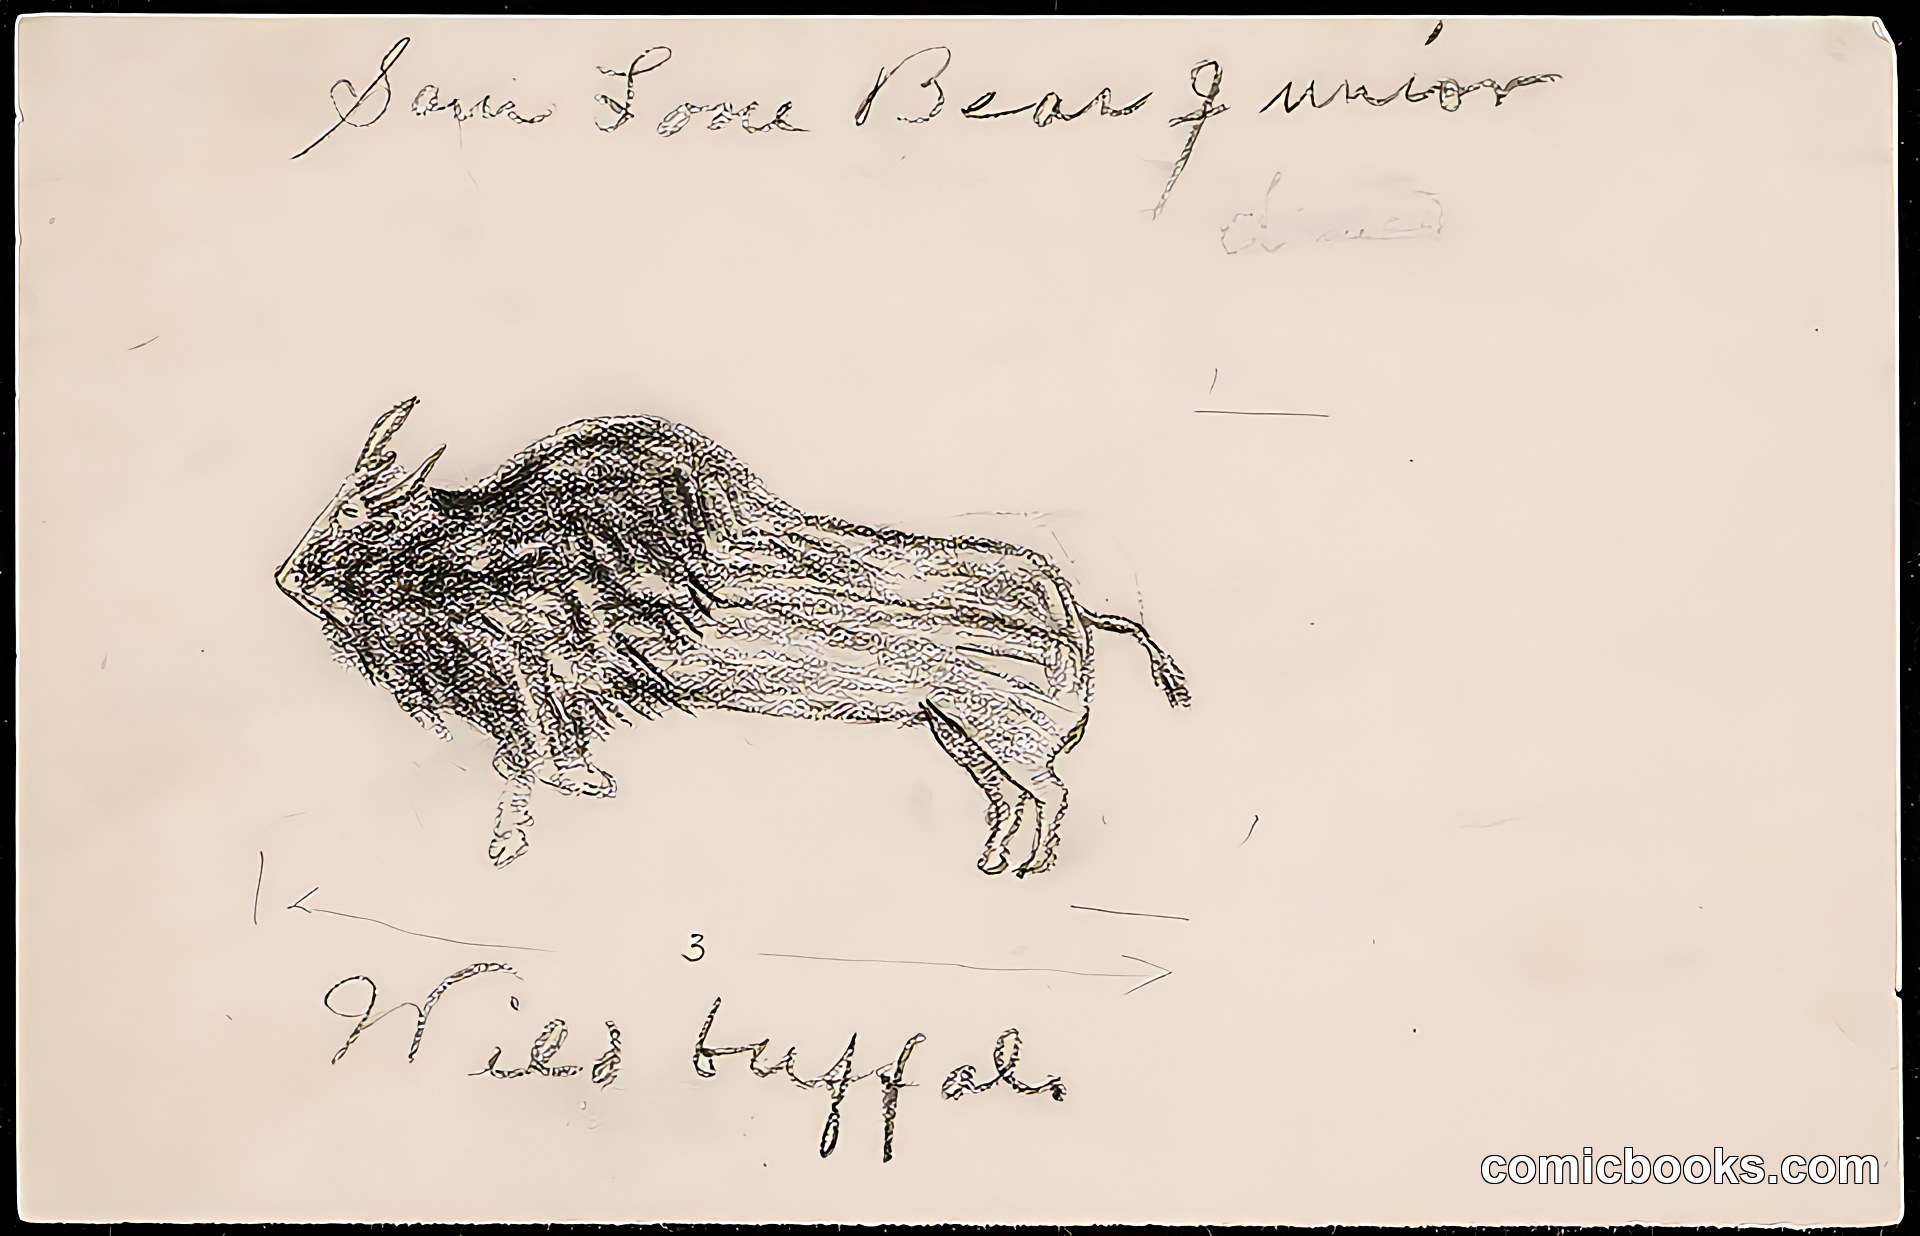 Sam Lone Bear Junior
3
Wild buffalo
comicbooks.com